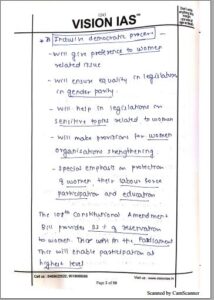 VISION IAS
Inclusive democratic process
- Will give preference to women
related issue
- Will ensure equality in legislation
in gender parity.
- Will help in legislations on
sensitive topics related to women
- Will make provisions for women
organisations strengthening
- Special emphasis on protection
of women their labour force
participation and education
The 108th Constitutional Amendment
Bill provides 33% reservation
to women in the Parliament
This will enable participation at
highest level
Page 3 of
Scanned by CamScanner